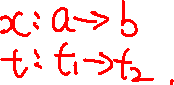 x: a→b
t: t₁→t₂.